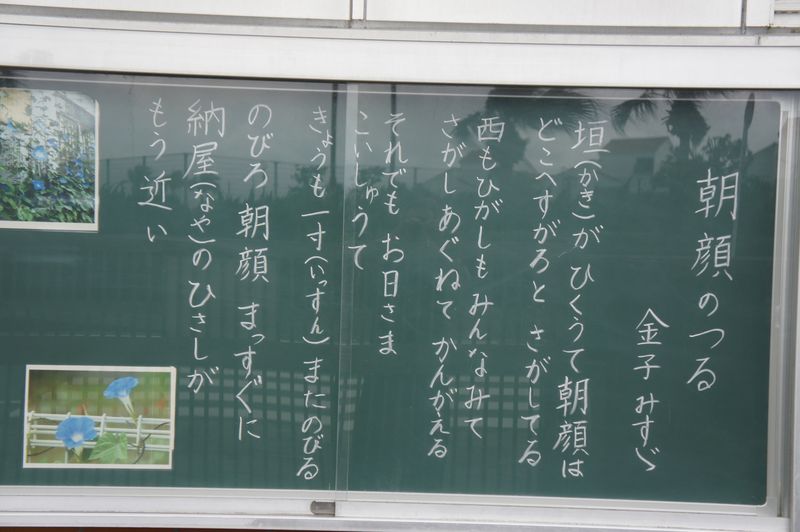 朝顔のつる
金子みすゞ
垣(かき)が ひくうて 朝顔は
どこへすがろと さがしてる
西もひがしも みんなみて
さがしあぐねて かんがえる
それでも お日さま
こいしゅうて
きょうも一寸(いっすん)またのびる
のびろ 朝顔 まっすぐに
納屋(なや)のひさしが
もう近い